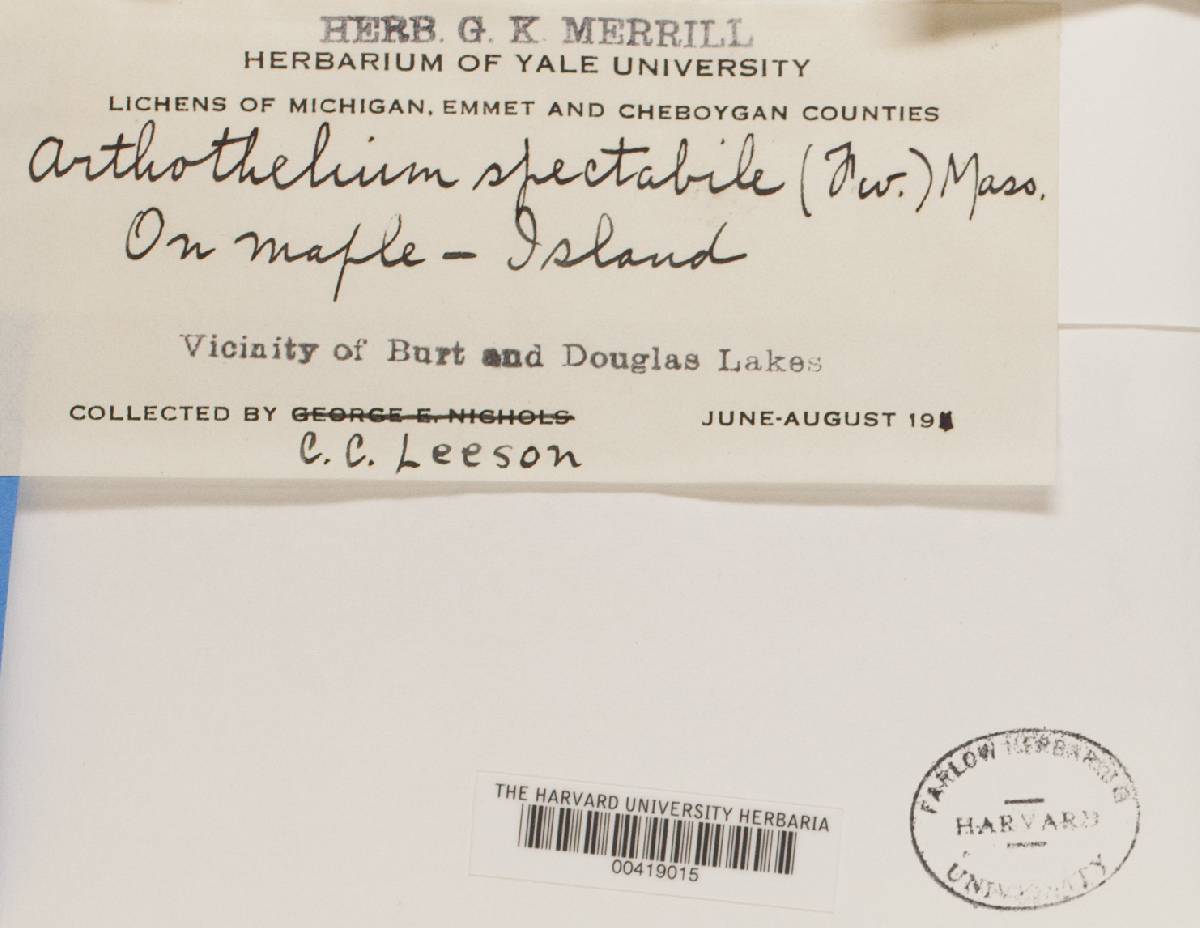 HERB. G. K. MERRILL
HERBARIUM OF YALE UNIVERSITY
LICHENS OF MICHIGAN, EMMET AND CHEBOYGAN COUNTIES
Arthothelium spectabile (Fw.) Mass.
On maple – Island
Vicinity of Burt and Douglas Lakes
COLLECTED BY GEORGE E. NICHOLS JUNE-AUGUST 19
C. C. Leeson
THE HARVARD UNIVERSITY HERBARIA
00419015
FARLOW HERBARIUM
HARVARD
UNIVERSITY